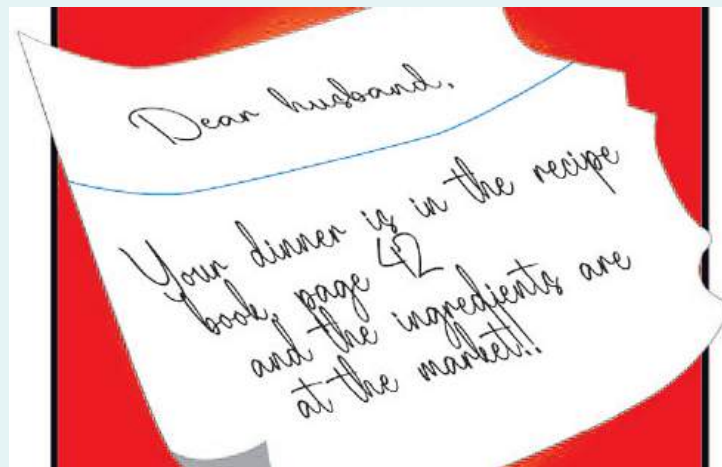 Dear husband,
Your dinner is in the recipe
book, page 42
and the ingredients are
at the market!!